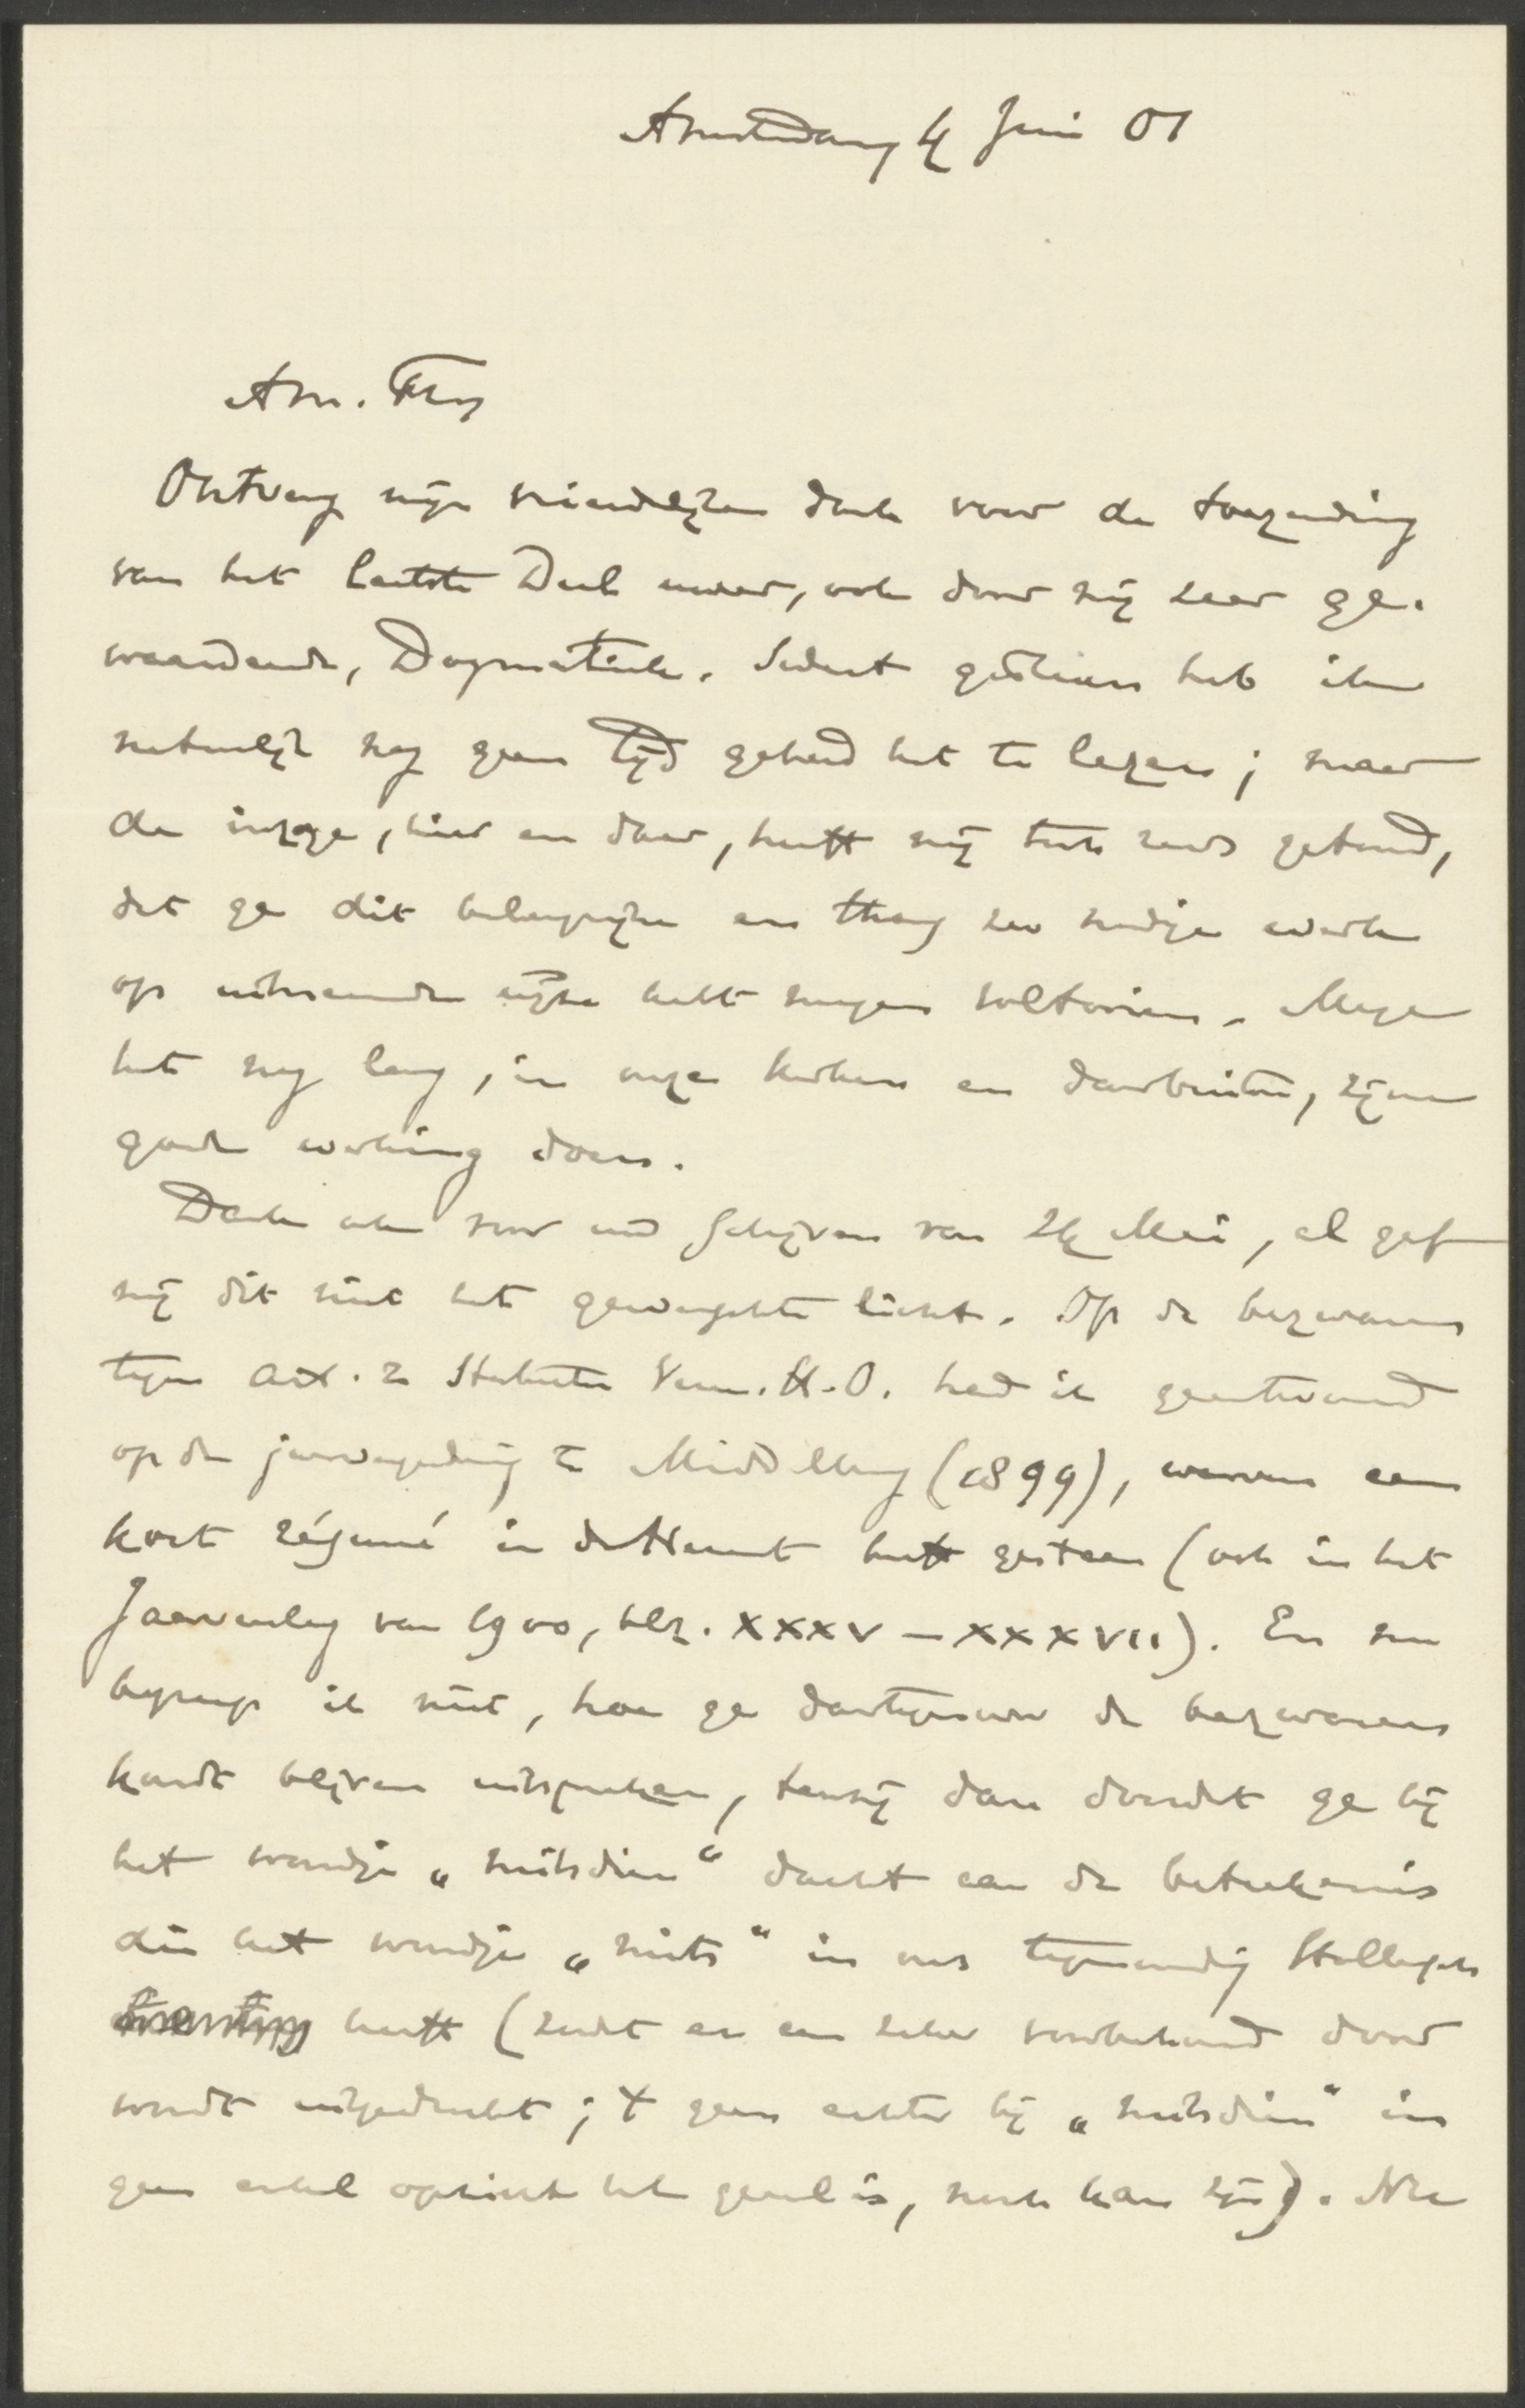 Amsterdam, 4 Juni 01
Am. Frs
Ontvang mijn vriendelijken dank voor de toezending
van het laatste Deel uwer, ook door mij zeer ge-
waardeerde, Dogmatiek. Sedert gisteren heb ik
natuurlijk nog geen tijd gehad het te lezen; maar
de inzage, hier en daar, heeft mij toch reeds getoond,
dat ge dit belangrijke en thans zoo noodige werk
op uitnemende wijze hebt mogen voltooien. Moge
het nog lang, in onze kerken en daarbuiten, zijne
goede werking doen.
Dank ook voor uw schrijven van 24 Mei, al gaf
mij dit niet het gewenschte licht. Op de bezwaren
tegen art. 2 Statuten Vereen. H.O. had ik geantwoord
op de jaarvergadering te Middelburg (1899), waarvan een
kort résumé in de Heraut heeft gestaan (ook in het
Jaarverslag van 1900, blz. XXXV – XXXVII). En nu
begreep ik niet, hoe ge daartegenover de bezwaren
kondt blijven uitspreken, tenzij dan doordat ge bij
het woordje „mitsdien“ dacht aan de beteekenis
die het woordje „mits“ in ons tegenwoordig Hollandsch
heeft (zoodat er een zeker voorbehoud door
wordt uitgedrukt; 't geen echter bij „mitsdien“ in
geen enkel opzicht het geval is, noch kan zijn). Nu